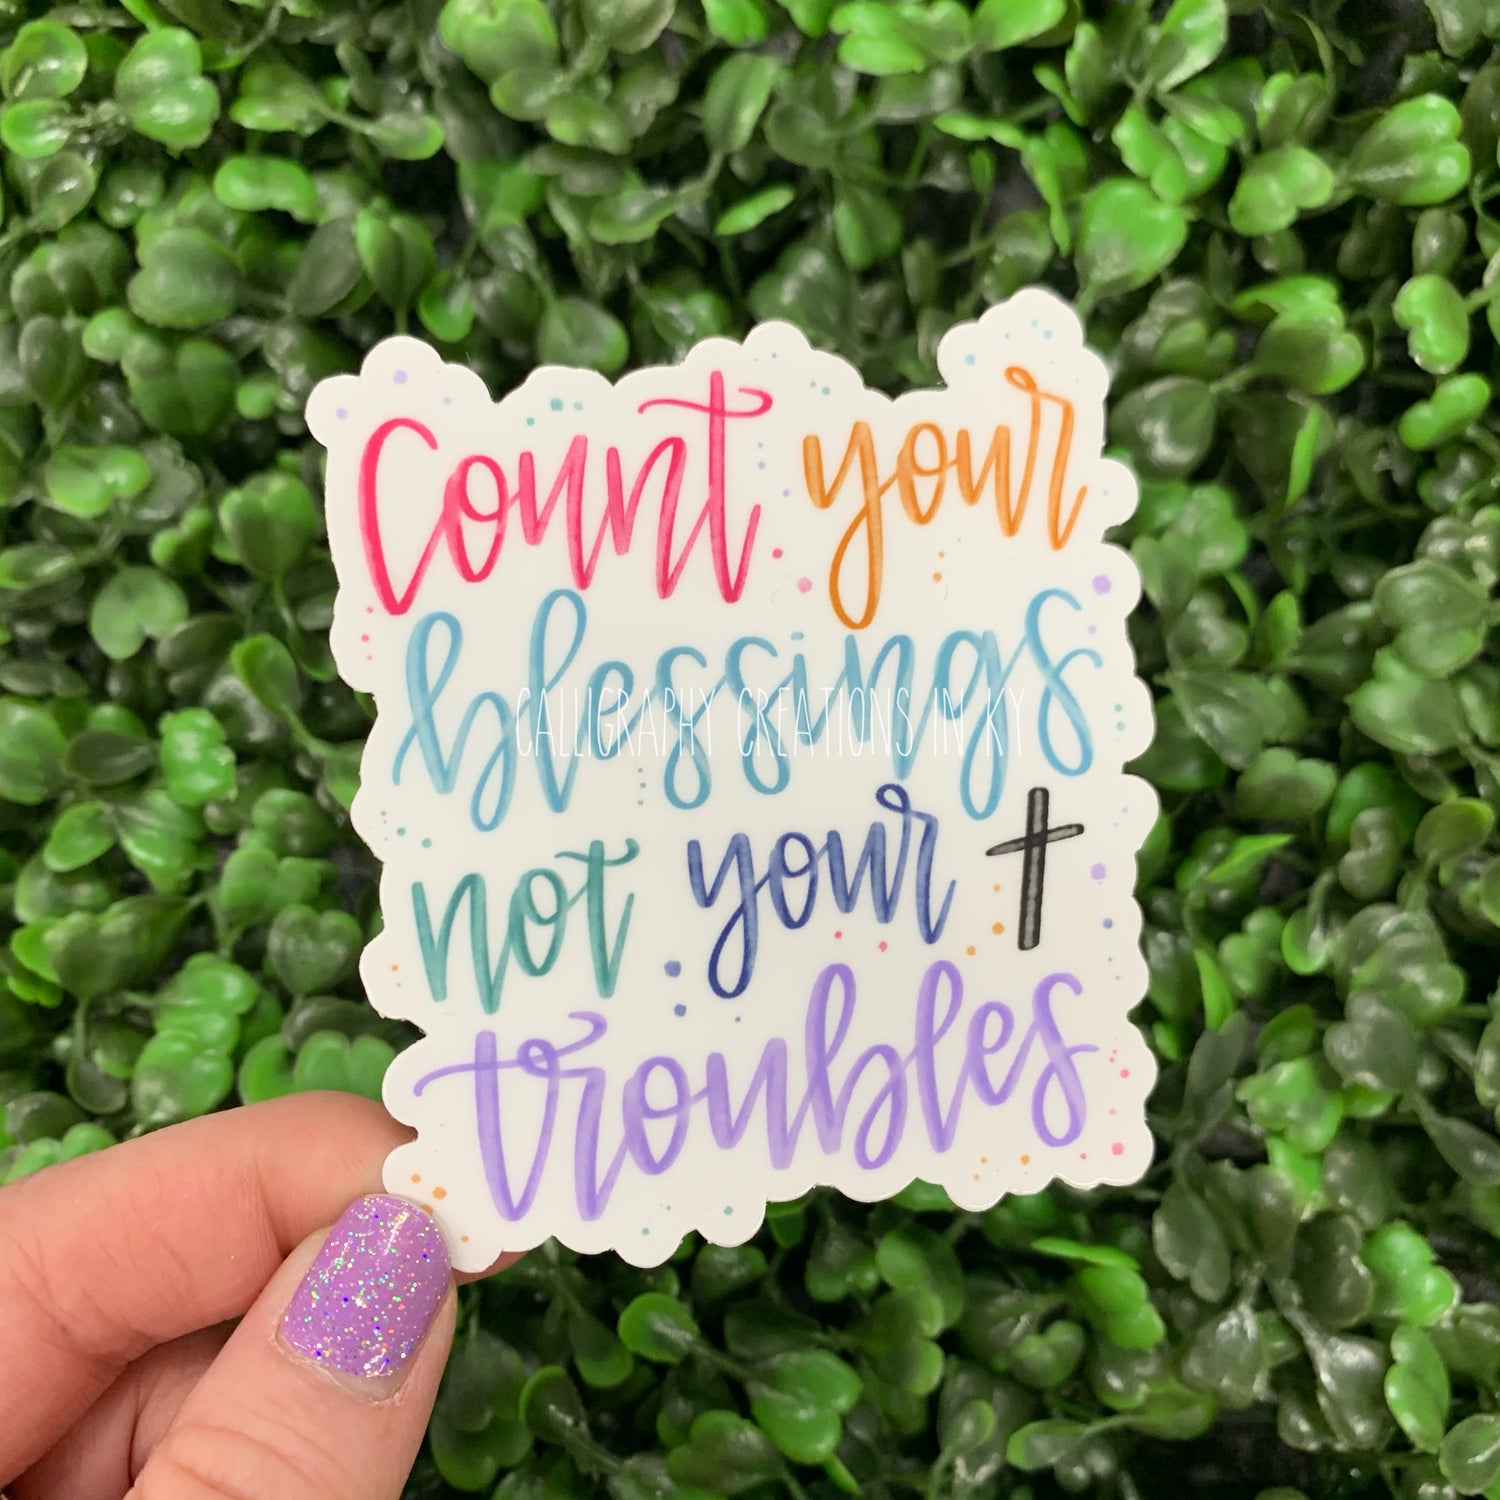 Count your
blessings
CALLIGRAPHY CREATIONS IN KY
not your
troubles